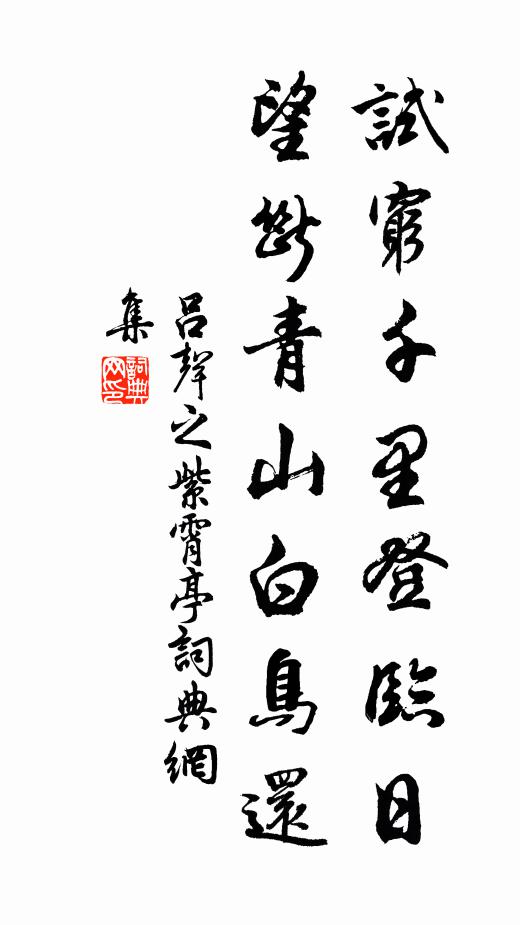 試窮千里登臨目
望斷青山白鳥還
呂聲之紫霄亭詞典網
集
詞典網印